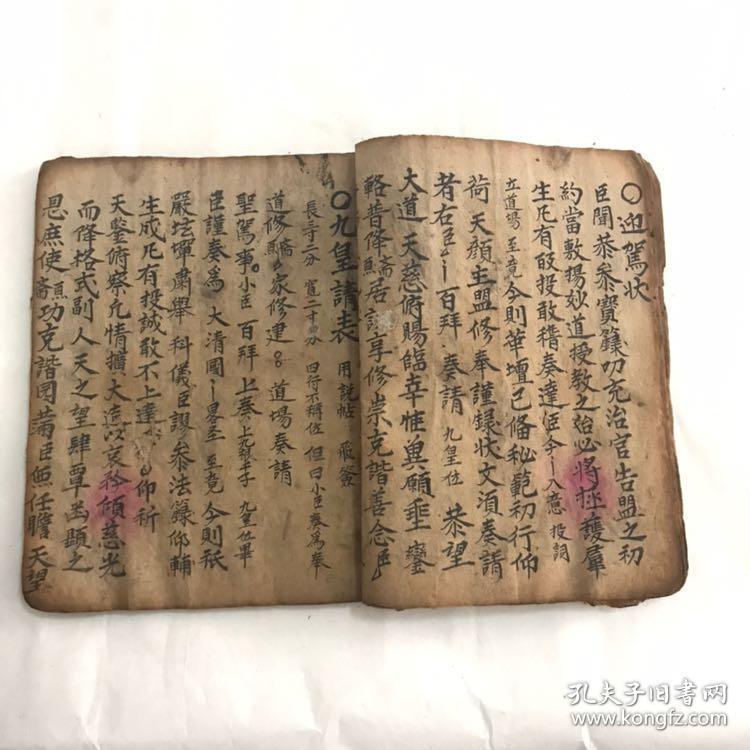 ○迎駕状
臣聞恭參寶籙叨充治官告盟之初
約當敷揚妙道授教之始必將拯護羣
生凡有叚投敢稽奏達臣今〻入意 投詞
立道場 至竟 今則華壇已俻秘範初行仰
荷天顔主盟修奉謹録状文湏奏請
者右臣〻百拜 奏請 九皇位 恭望
大道 天慈俯賜臨幸惟兾願垂鑾
輅普降齋居設享修崇克諧善念臣
○九皇請表 用説帖 飛簽
長三寸二分 寬二寸四分 四符不稱位 但曰小臣奏為奉
道修齋家修建 道場奏請
聖駕事小臣 百拜 上奏 九皇位畢
臣謹奏為 大清國〻畧至 至竟 今則祇
嚴坛墠肅舉 科儀臣謬參法籙仰輔
生成凡有投誠敢不上達 仰祈
天鑒俯察凢情擴大 以哀矜傾慈光
而降格式副人天之望肆覃丕顯之
恩庶使齋功克諧圓滿臣無任瞻 天望
孔夫子旧书网
www.kongfz.com